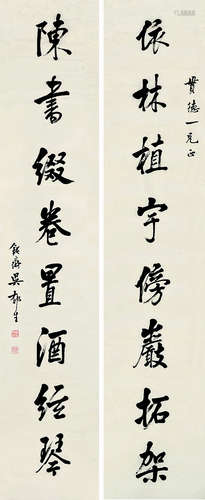 貫德一兄正
依林植宇傍巖拓架
陳書綴卷置酒弦琴
鈍齋吳郁生